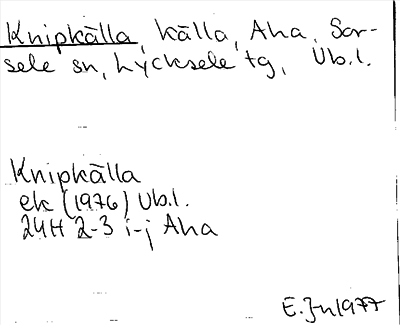 Knipkälla, källa, Aha, Sor-
sele sn, Lycksele tg, Vb.l.
Knipkälla
ek (1976) Vb.l.
24H 2-3 i-j Aha
E.Jn 1977